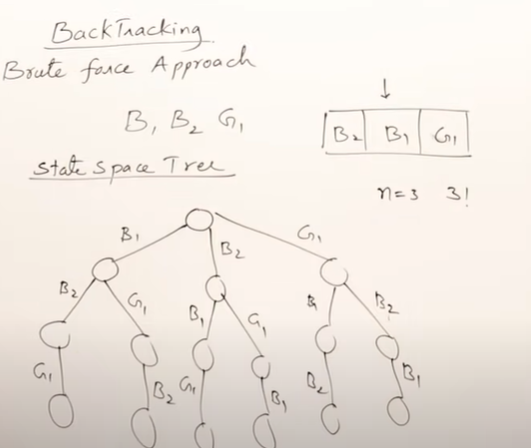 BackTracking
Brute force Approach
B1 B2 G1
↓
B2 B1 G1
State Space Tree
n=3 3!
B1 B2 G1
B2 G1 B1 G1 B1 B2
G1 B2 G1 B1 B2 B1